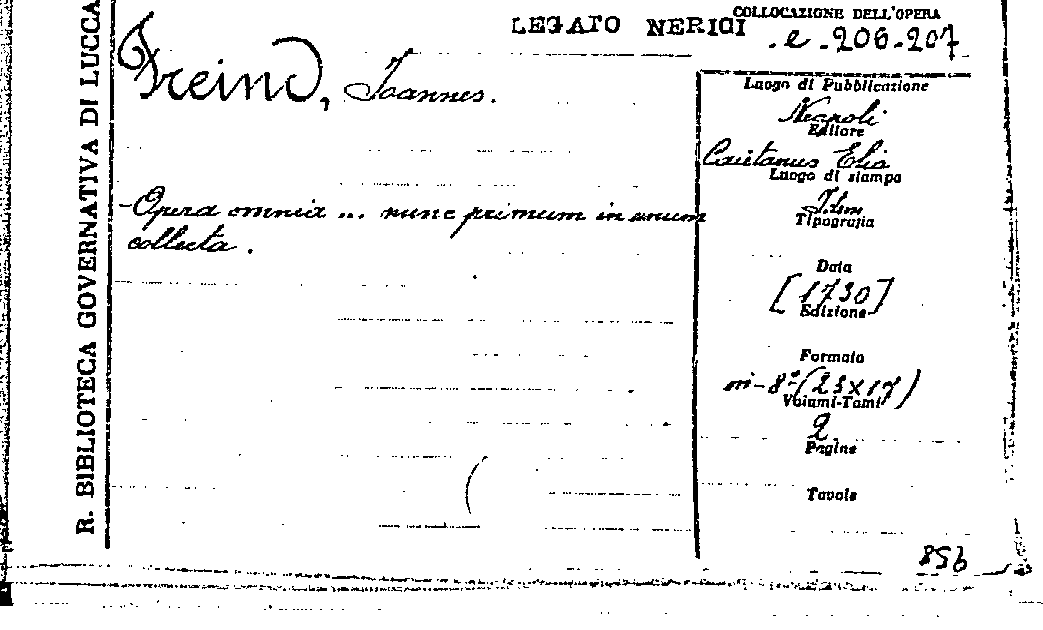 R. BIBLIOTECA GOVERNATIVA DI LUCCA
LEGATO NERICI
COLLOCAZIONE DELL'OPERA
.e.206.207
Freind, Joannes.
Opera omnia ... nunc primum in unum
collecta.
Luogo di Pubblicazione
Napoli
Editore
Caietanus Elia
Luogo di stampa
Idem
Tipografia
Data
[1730]
Edizione
Formato
in-8° (23x17)
Volumi-Tomi
2
Pagine
Tavole